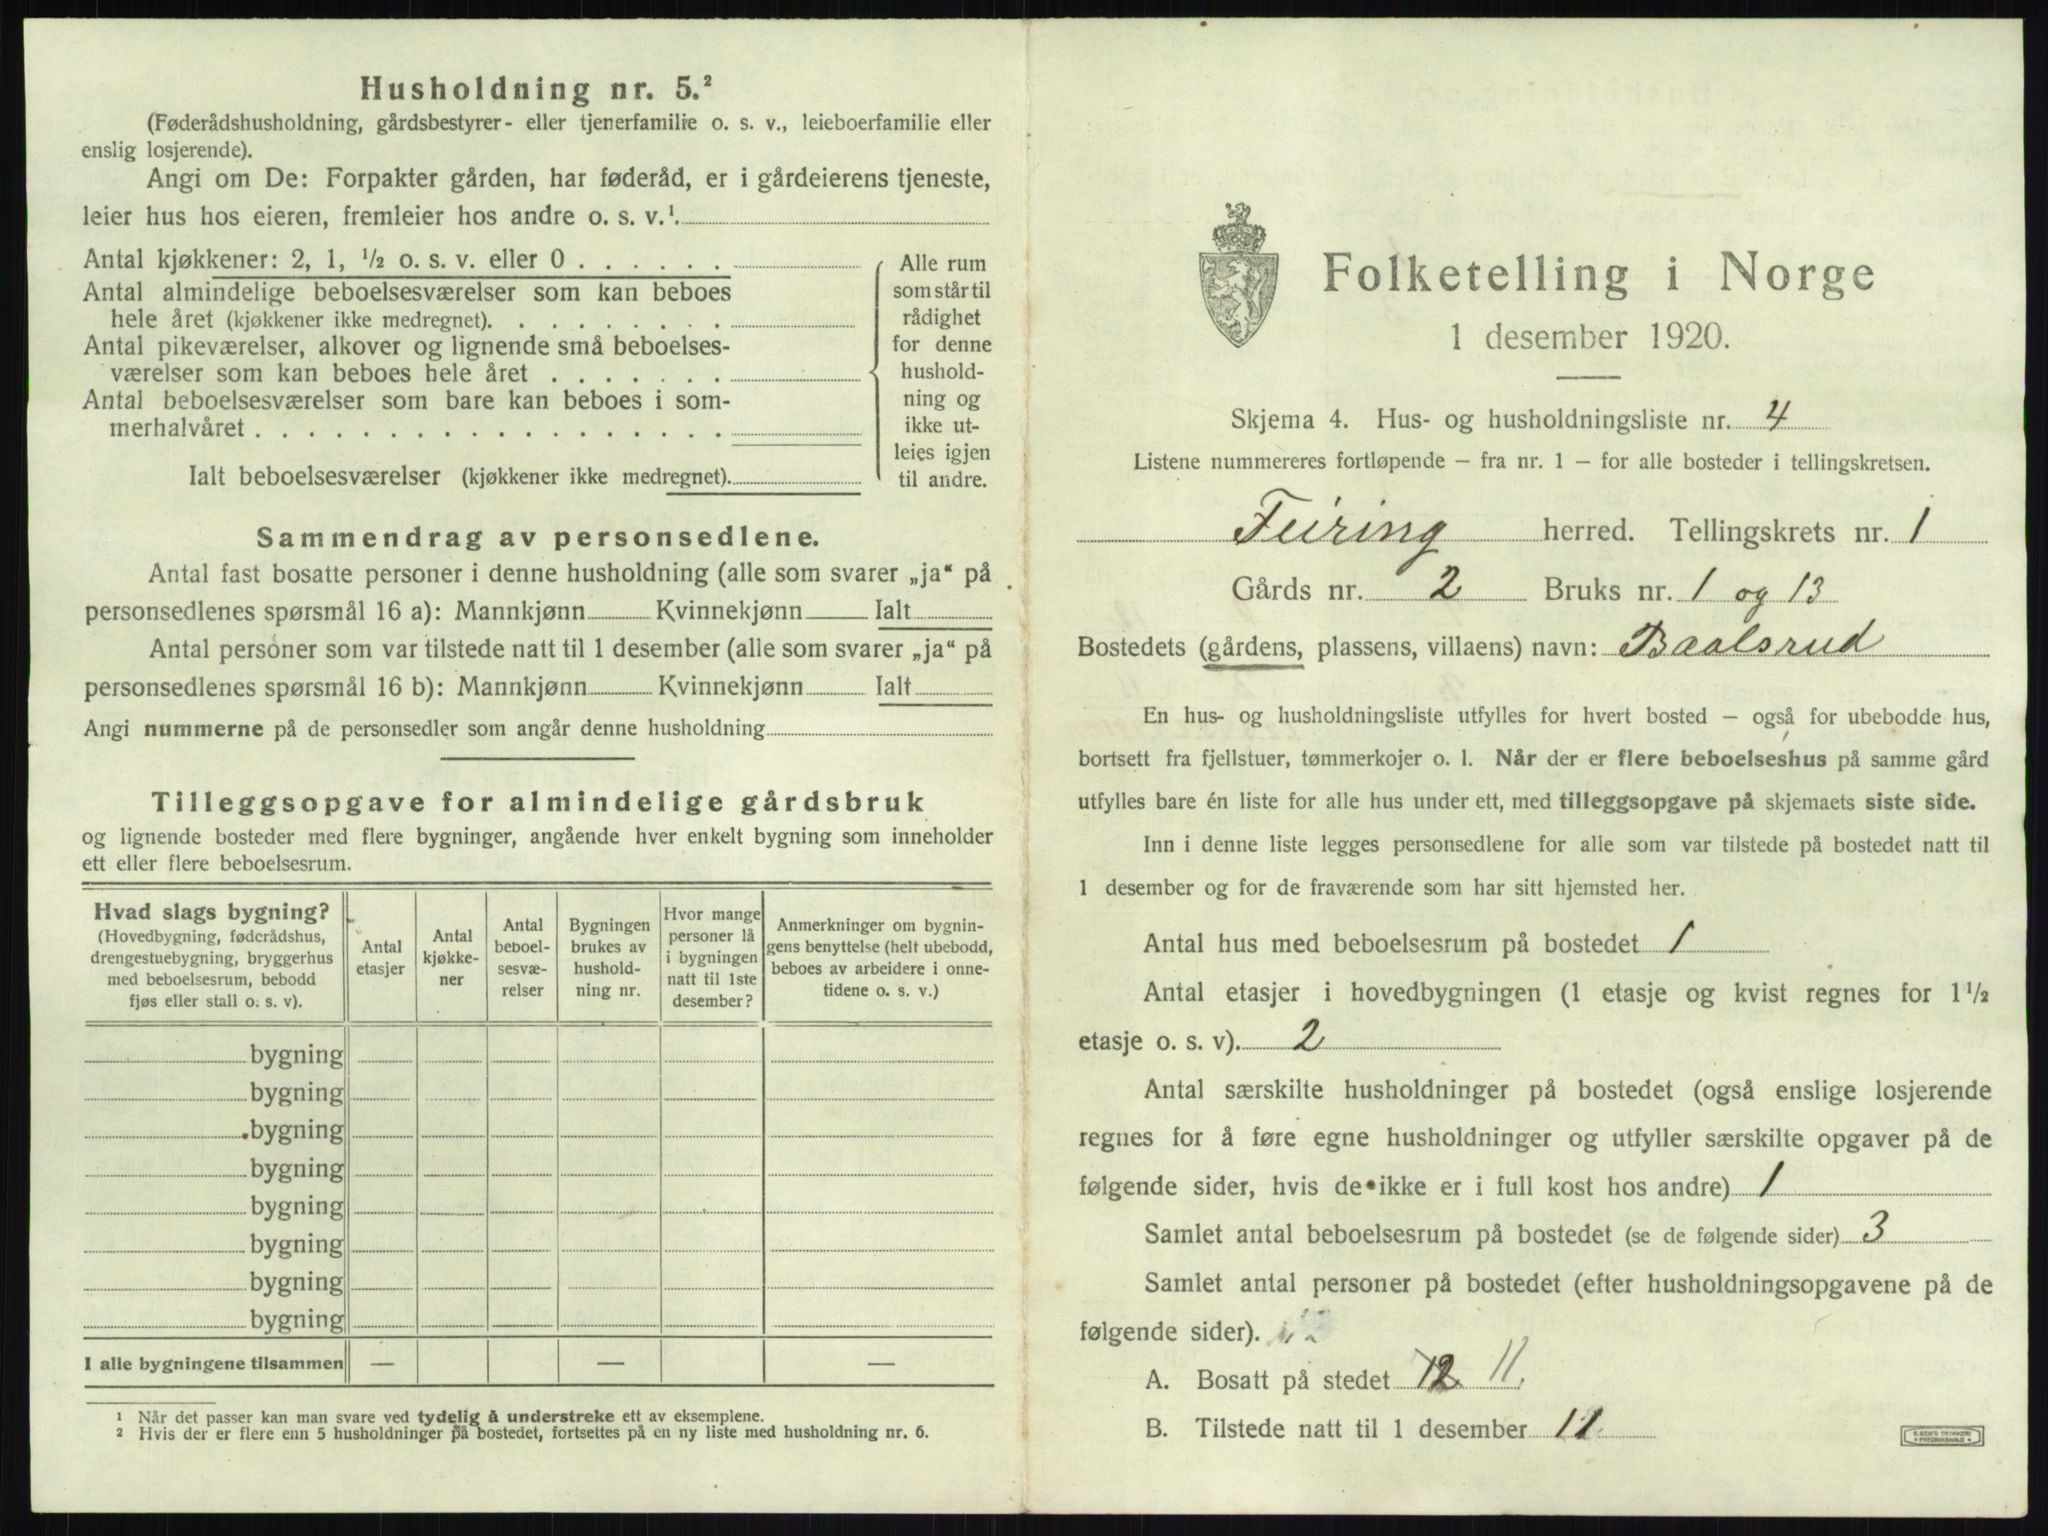 Husholdning nr. 5.²
(Føderådshusholdning, gårdsbestyrer- eller tjenerfamilie o. s. v., leieboerfamilie eller
enslig losjerende).
Angi om De: Forpakter gården, har føderåd, er i gårdeierens tjeneste,
leier hus hos eieren, fremleier hos andre o. s. v.¹.
Antal kjøkkener: 2, 1, ½ o. s. v. eller 0 . . . . . .
Antal almindelige beboelsesværelser som kan beboes
hele året (kjøkkener ikke medregnet). . . . . . . . .
Antal pikeværelser, alkover og lignende små beboelses-
værelser som kan beboes hele året . . . . . . .
Antal beboelsesværelser som bare kan beboes i som-
merhalvåret . . . . . . . . . . . . . . . . . .
Ialt beboelsesværelser (kjøkkener ikke medregnet).
Alle rum
som står til
rådighet
for denne
hushold-
ning og
ikke ut-
leies igjen
til andre.
Sammendrag av personsedlene.
Antal fast bosatte personer i denne husholdning (alle som svarer „ja“ på
personsedlenes spørsmål 16 a): Mannkjønn Kvinnekjønn Ialt
Antal personer som var tilstede natt til 1 desember (alle som svarer „ja“ på
personsedlenes spørsmål 16 b): Mannkjønn Kvinnekjønn Ialt
Angi nummerne på de personsedler som angår denne husholdning
Tilleggsopgave for almindelige gårdsbruk
og lignende bosteder med flere bygninger, angående hver enkelt bygning som inneholder
ett eller flere beboelsesrum.
Hvad slags bygning?
(Hovedbygning, fødcrådshus,
drengestuebygning, bryggerhus
med beboelsesrum, bebodd
fjøs eller stall o. s. v).
Antal
etasjer
Antal
kjøkke-
ner
Antal
beboel-
sesvæ-
relser
Bygningen
brukes av
hushold-
ning nr.
Hvor mange
personer lå
i bygningen
natt til 1ste
desember?
Anmerkninger om bygnin-
gens benyttelse (helt ubebodd,
beboes av arbeidere i onne-
tidene o. s. v.)
bygning
bygning
bygning
bygning
bygning
bygning
bygning
bygning
I alle bygningene tilsammen — — —
¹ Når det passer kan man svare ved tydelig å understreke ett av eksemplene.
² Hvis der er flere enn 5 husholdninger på bostedet, fortsettes på en ny liste med husholdning nr. 6.
Folketelling i Norge
1 desember 1920.
Skjema 4. Hus- og husholdningsliste nr. 4
Listene nummereres fortløpende – fra nr. 1 – for alle bosteder i tellingskretsen.
Feiring herred. Tellingskrets nr. 1
Gårds nr. 2 Bruks nr. 1 og 13
Bostedets (gårdens, plassens, villaens) navn: Baalsrud
En hus- og husholdningsliste utfylles for hvert bosted – også for ubebodde hus,
bortsett fra fjellstuer, tømmerkojer o. l. Når der er flere beboelseshus på samme gård
utfylles bare én liste for alle hus under ett, med tilleggsopgave på skjemaets siste side.
Inn i denne liste legges personsedlene for alle som var tilstede på bostedet natt til
1 desember og for de fraværende som har sitt hjemsted her.
Antal hus med beboelsesrum på bostedet 1
Antal etasjer i hovedbygningen (1 etasje og kvist regnes for 1½
etasje o. s. v). 2
Antal særskilte husholdninger på bostedet (også enslige losjerende
regnes for å føre egne husholdninger og utfyller særskilte opgaver på de
følgende sider, hvis de ikke er i full kost hos andre) 1
Samlet antal beboelsesrum på bostedet (se de følgende sider) 3
Samlet antal personer på bostedet (efter husholdningsopgavene på de
følgende sider).
A. Bosatt på stedet 12 11.
B. Tilstede natt til 1 desember 11